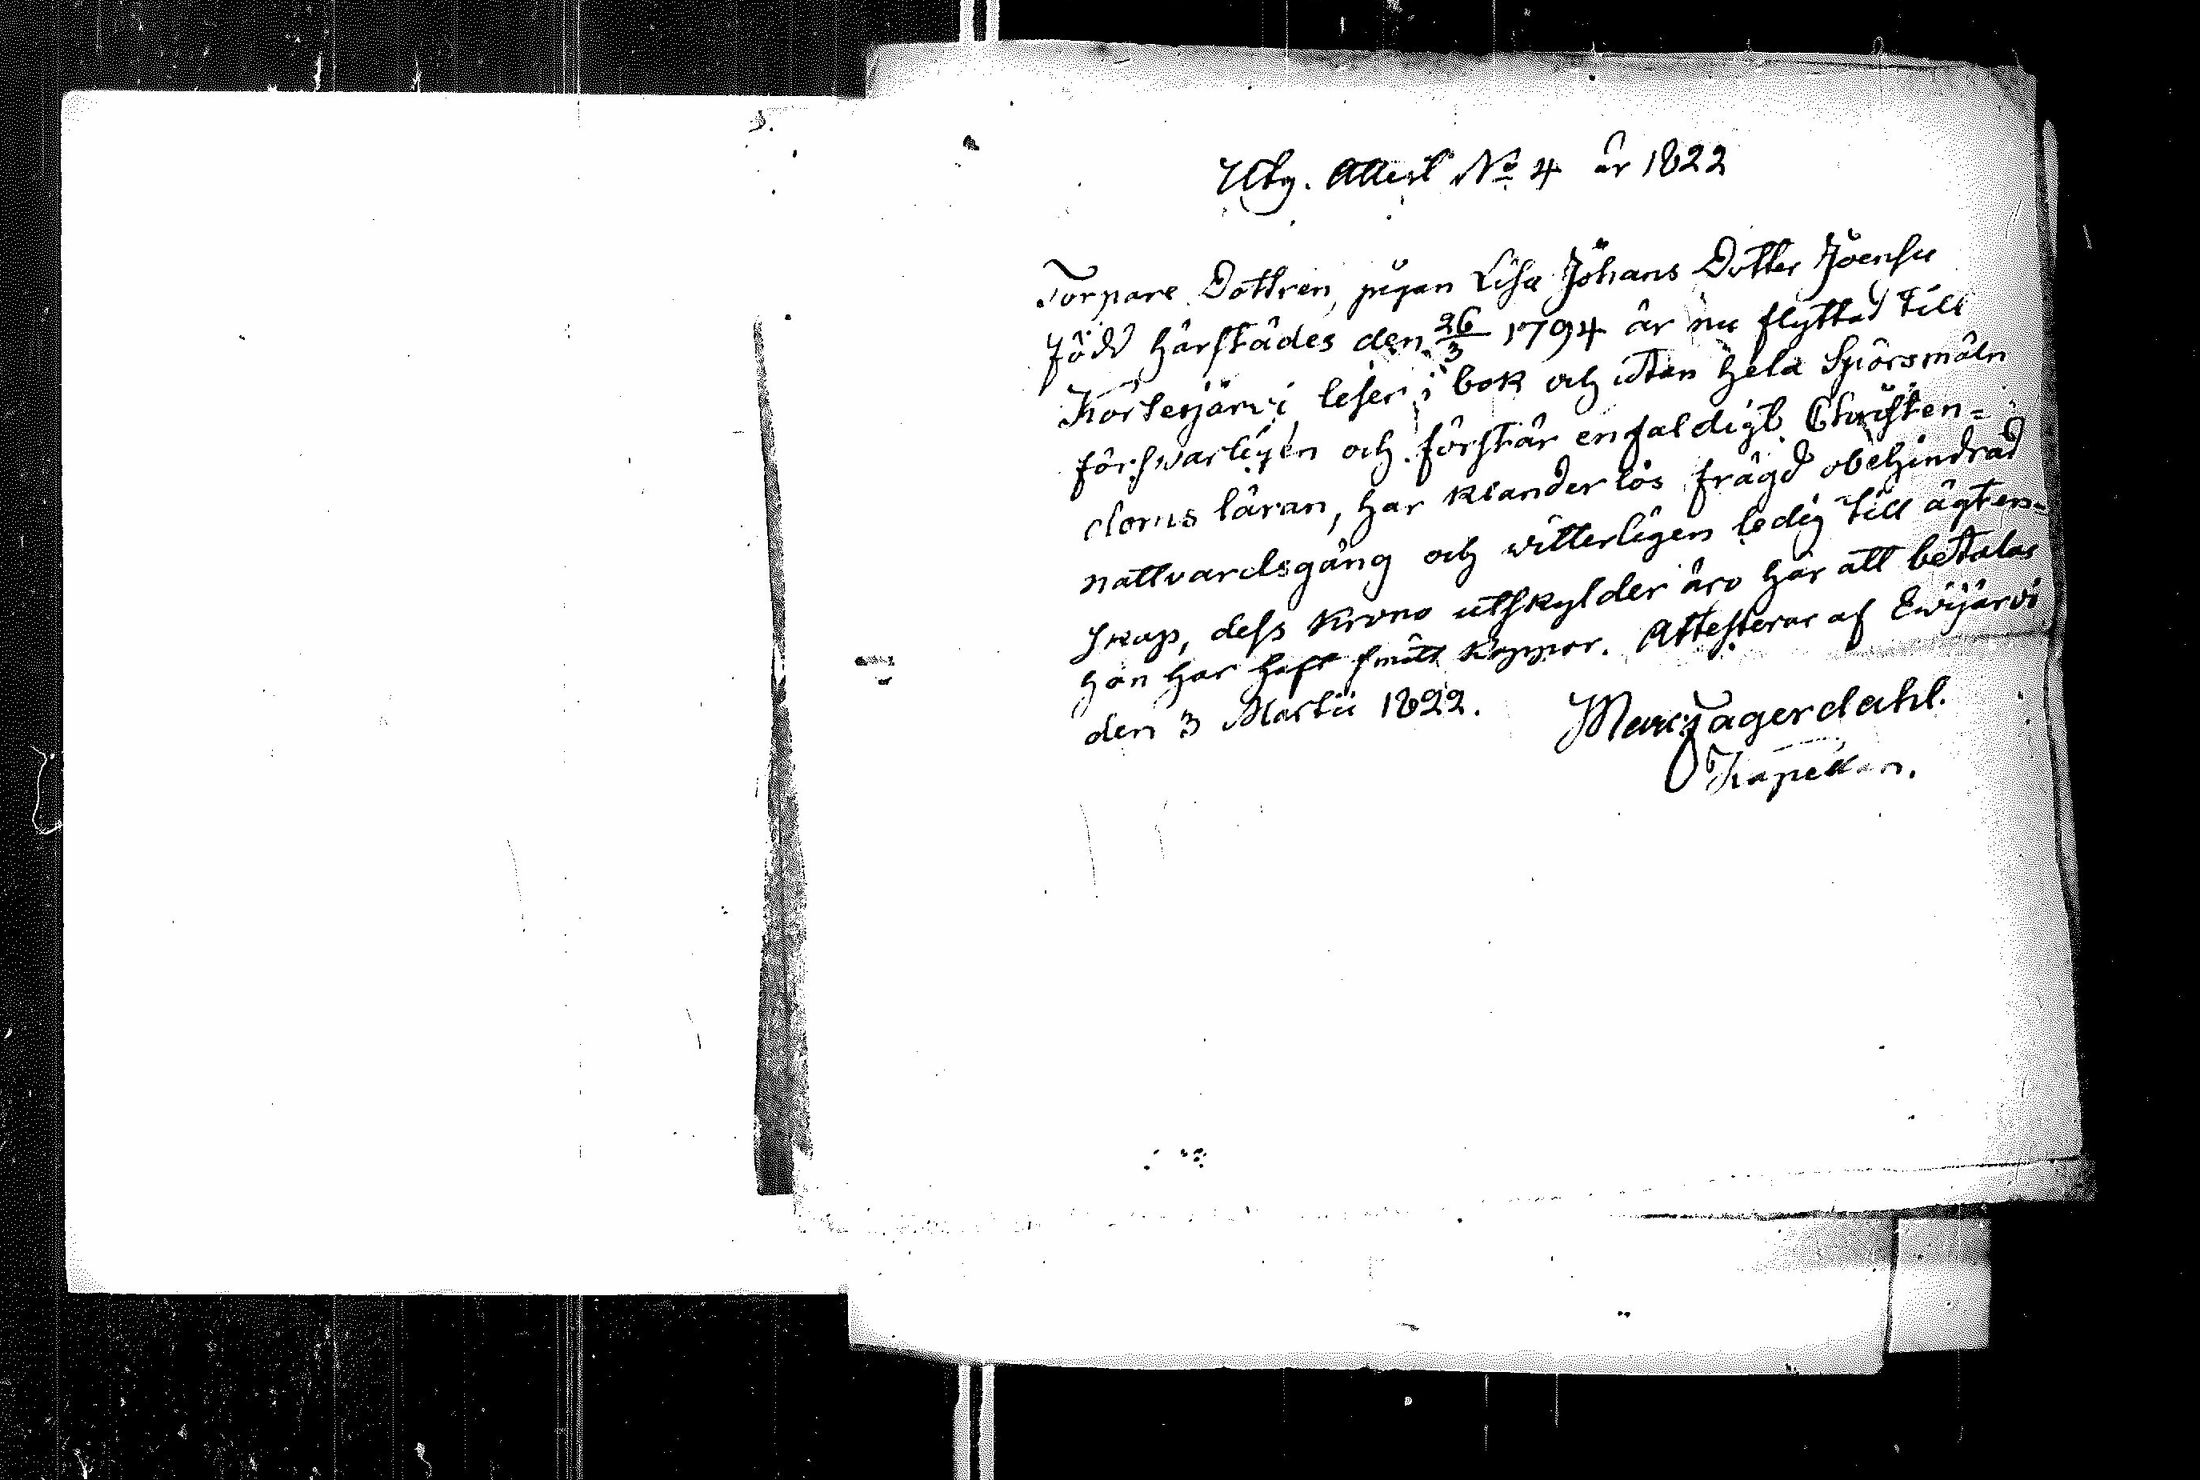 Utg. Attest No 4 år 1822
Torpare Dottren, pigan Lisa Johans Dotter Joensu
född härstädes den 26/3 1794 är nu flyttad till
Kortesjärvi, leser i bok och utan hela Spörsmåln
försvarligen och förstår enfaldigt Christen=
doms läran, har klanderlös frägd obehindrad
nattvardsgång och witterligen ledig till ägten=
skap, dess Krono utskylder äro här att betalas
hon har haft smått koppor. Attesteras af Ewijärvi
den 3 Martii 1822.
Marc Fagerdahl.
Kapellan.